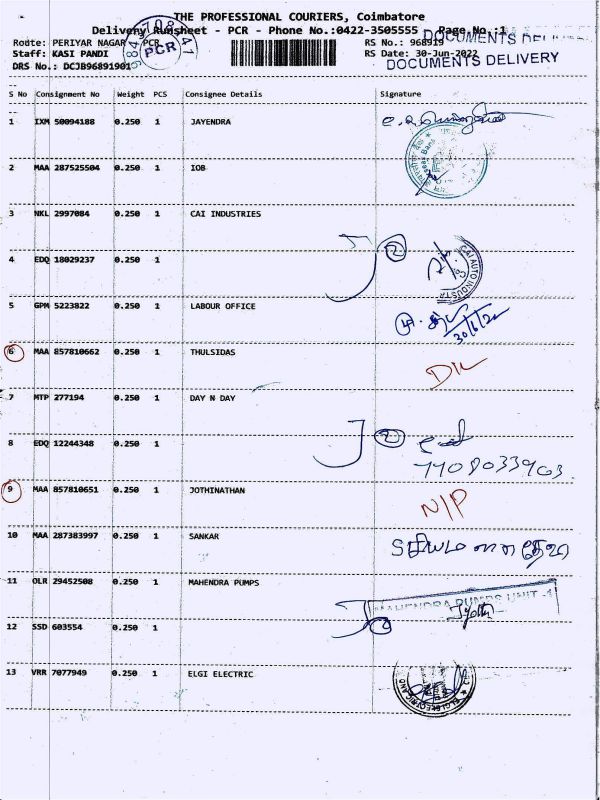 THE PROFESSIONAL COURIERS, Coimbatore
Delivery Runsheet - PCR - Phone No.:0422-3505555 Page No.:1
Route: PERIYAR NAGAR - PCR RS No.: 968919
Staff: KASI PANDI RS Date: 30-Jun-2022
DRS No.: DCJB96891901 DOCUMENTS DELIVERY
PCR
S No Consignment No Weight PCS Consignee Details Signature
1 IXM 50094188 0.250 1 JAYENDRA
2 MAA 287525504 0.250 1 IOB
3 NKL 2997084 0.250 1 CAI INDUSTRIES
4 EDQ 18029237 0.250 1
CAI AUTO INDUSTR
5 GPM 5223822 0.250 1 LABOUR OFFICE
30/6/22
6 MAA 857810662 0.250 1 THULSIDAS
7 MTP 277194 0.250 1 DAY N DAY
8 EDQ 12244348 0.250 1
9 MAA 857810651 0.250 1 JOTHINATHAN N/P
10 MAA 287383997 0.250 1 SANKAR
11 OLR 29452508 0.250 1 MAHENDRA PUMPS
MAHENDRA PUMPS UNIT -1
Jyothi
12 SSD 603554 0.250 1
13 VRR 7077949 0.250 1 ELGI ELECTRIC